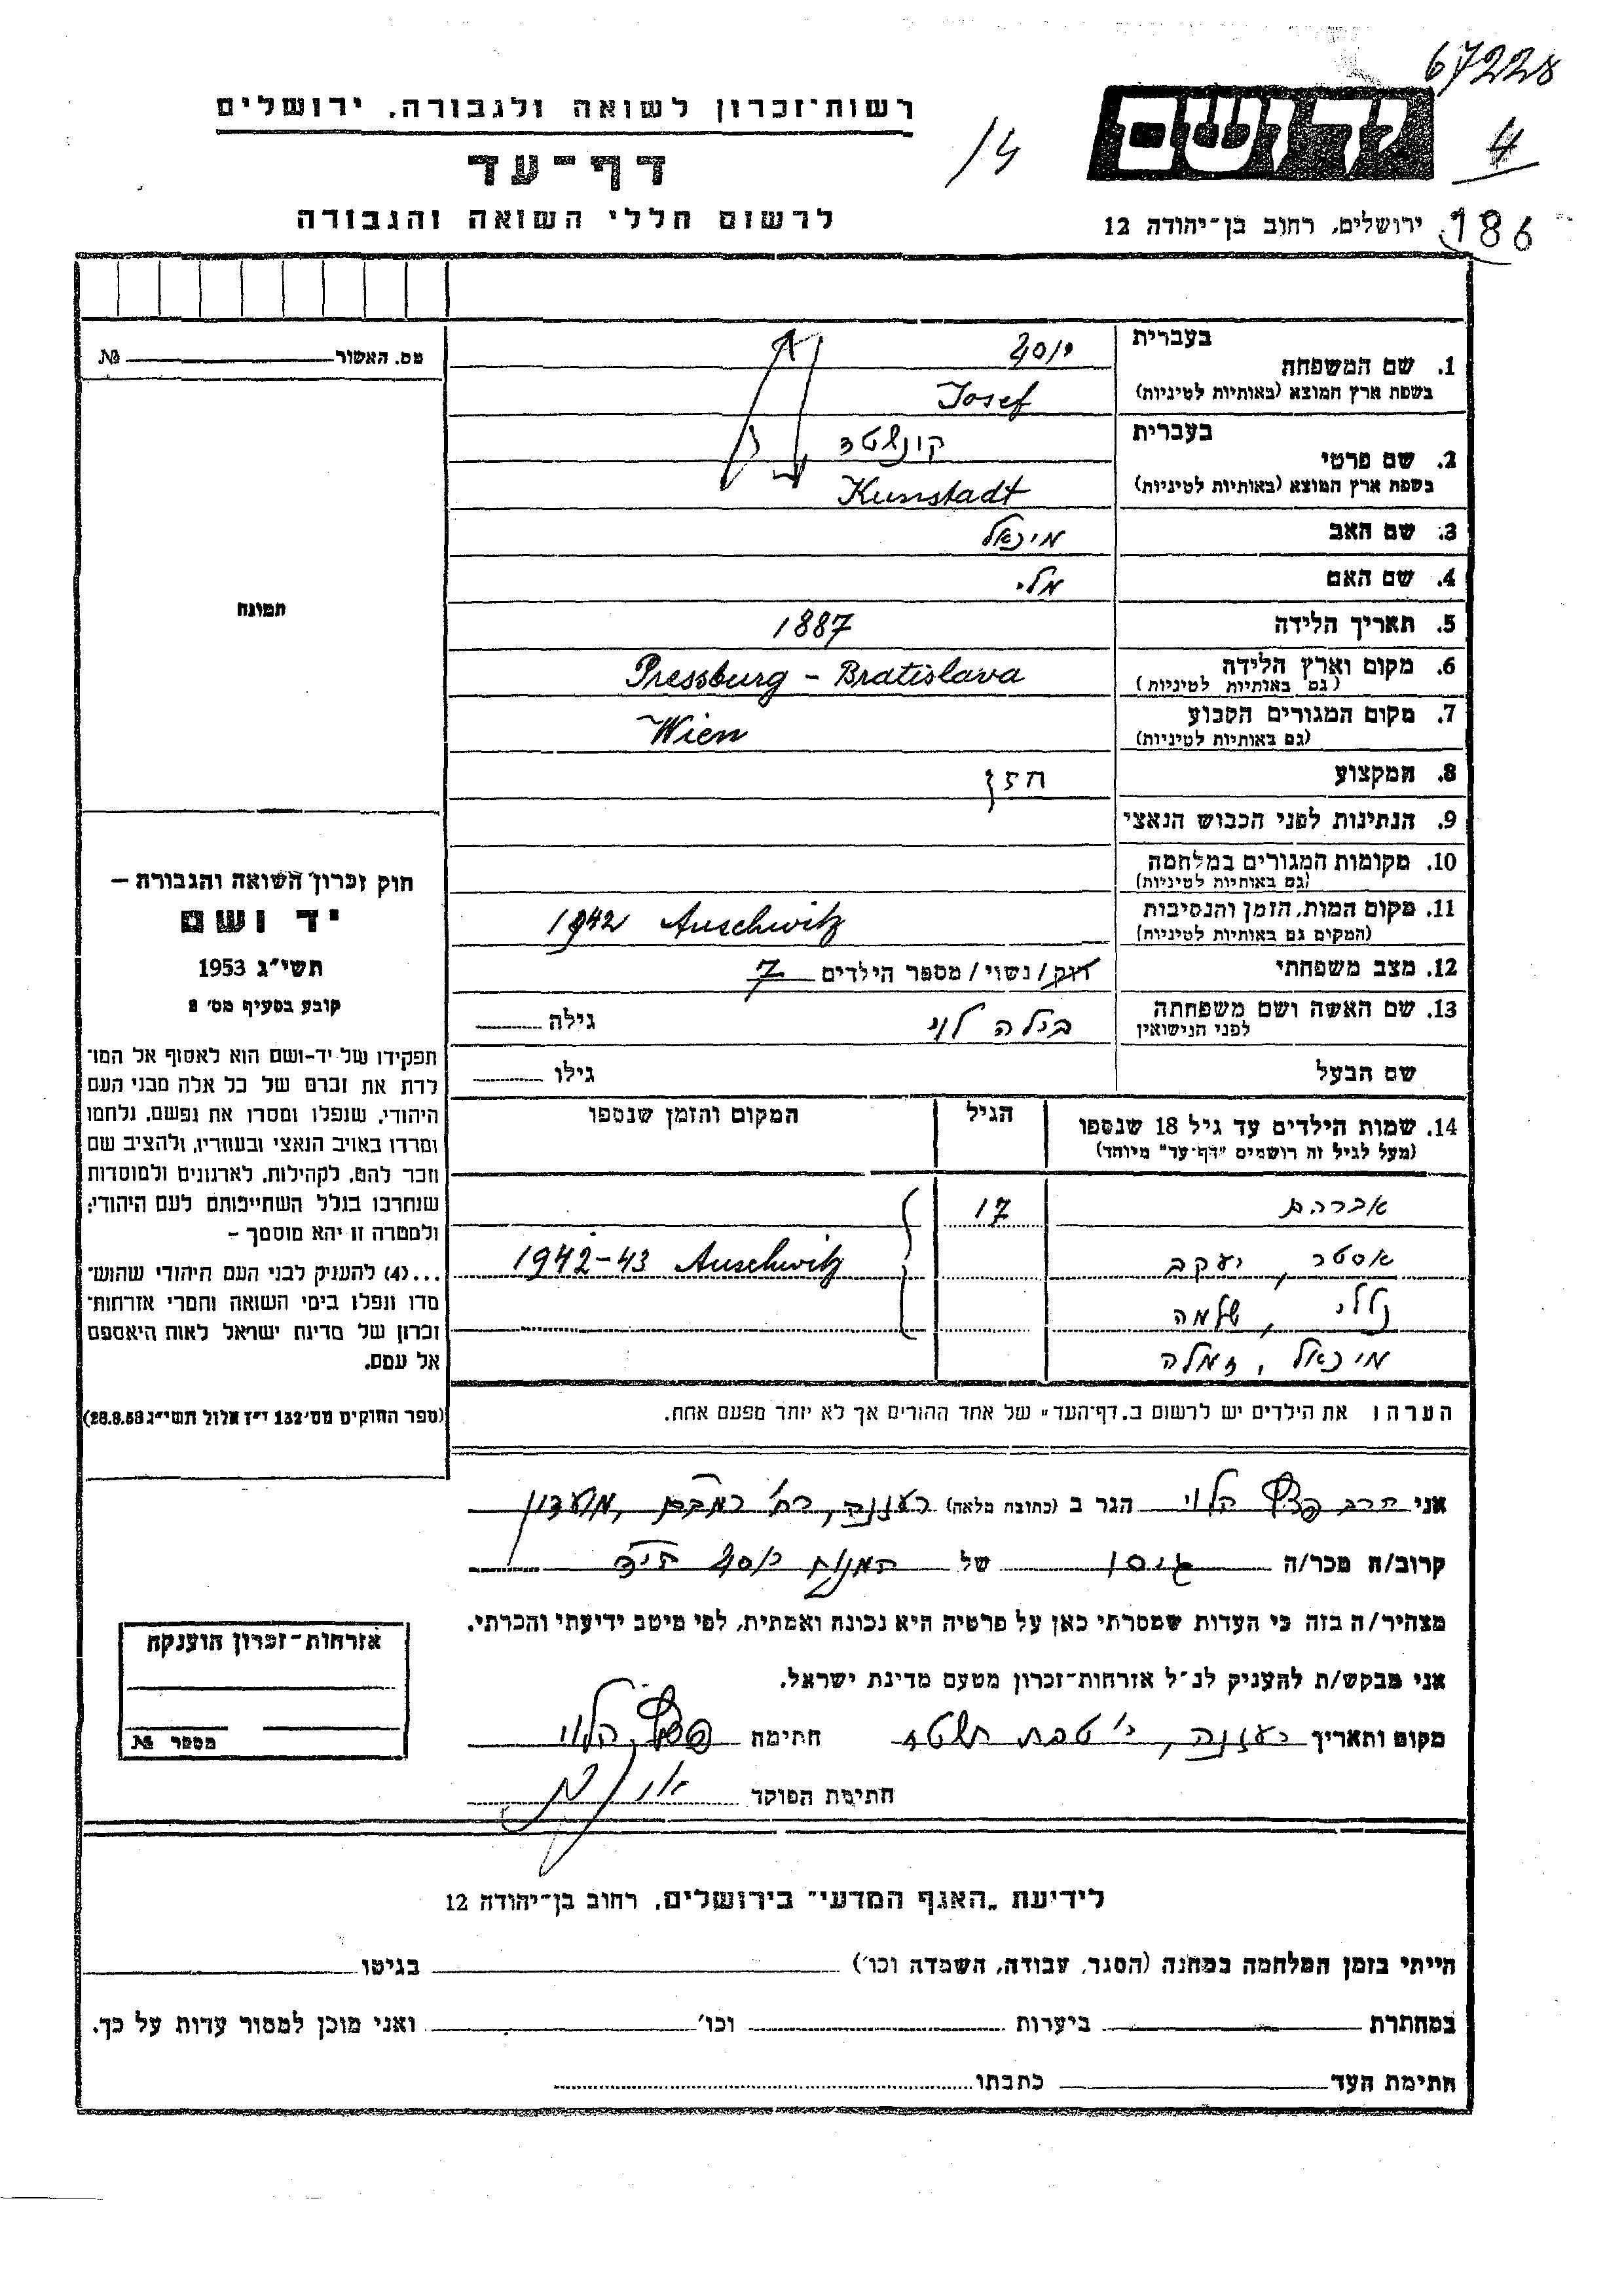 67228
רשות־זכרון לשואה ולגבורה. ירושלים
ידושם
4
14
דף־עד
לרשום חללי השואה והגבורה
ירושלים, רחוב בן־יהודה 12
186
מס. האשור № 
1. שם המשפחה
בעברית
יוסף
בשפת ארץ המוצא (באותיות לטיניות)
Josef
2. שם פרטי
בעברית
קונשטדט
בשפת ארץ המוצא (באותיות לטיניות)
Kunstadt
3. שם האב מיכאל
4. שם האם מלי
5. תאריך הלידה 1887
6. מקום וארץ הלידה
(גם באותיות לטיניות)
Pressburg - Bratislava
7. מקום המגורים הקבוע
(גם באותיות לטיניות)
Wien
8. המקצוע חזן
9. הנתינות לפני הכבוש הנאצי
10. מקומות המגורים במלחמה
(גם באותיות לטיניות)
11. מקום המות, הזמן והנסיבות
(המקום גם באותיות לטיניות)
1942 Auschwitz
12. מצב משפחתי רוק/נשוי/מספר הילדים 7
13. שם האשה ושם משפחתה
לפני הנישואין
בילה לוי גילה
שם הבעל גילו
14. שמות הילדים עד גיל 18 שנספו
(מעל לגיל זה רושמים "דף־עד" מיוחד)
הגיל
המקום והזמן שנספו
אברהם 17
אסטר, יעקב 1942-43 Auschwitz
נלי, שלמה
מיכאל, זמלה
הערה: את הילדים יש לרשום ב„דף־העד" של אחד ההורים אך לא יותר מפעם אחת.
תמונה
חוק זכרון השואה והגבורה —
יד ושם
תשי"ג 1953
קובע בסעיף מס׳ 2
תפקידו של יד-ושם הוא לאסוף אל המו־
לדת את זכרם של כל אלה מבני העם
היהודי, שנפלו ומסרו את נפשם, נלחמו
ומרדו באויב הנאצי ובעוזריו, ולהציב שם
וזכר להם, לקהילות, לארגונים ולמוסדות
שנחרבו בגלל השתייכותם לעם היהודי;
ולמטרה זו יהא מוסמך —
...(4) להעניק לבני העם היהודי שהוש־
מדו ונפלו בימי השואה והמרי אזרחות־
זכרון של מדינת ישראל לאות היאספם
אל עמם.
(ספר החוקים מס׳ 132 י"ז אלול תשי"ג 28.8.53)
אני הרב הלוי הגר ב (כתובת מלאה) רעננה, רח׳ רמבם, מועדון
קרוב/ה מכר/ה גיסו של המנוח יוסף הי"ד
מצהיר/ה בזה כי העדות שמסרתי כאן על פרטיה היא נכונה ואמתית, לפי מיטב ידיעתי והכרתי.
אני מבקש/ת להעניק לנ"ל אזרחות־זכרון מטעם מדינת ישראל.
מקום ותאריך רעננה, י׳ טבת תשט"ז חתימה הלוי
חתימת הפוקד
אזרחות־זכרון הוענקה
מספר №
לידיעת „האגף המדעי" בירושלים, רחוב בן־יהודה 12
הייתי בזמן המלחמה במחנה (הסגר, עבודה, השמדה וכו׳) בגיטו
במחתרת ביערות וכו׳ ואני מוכן למסור עדות על כך.
חתימת העד כתבתו